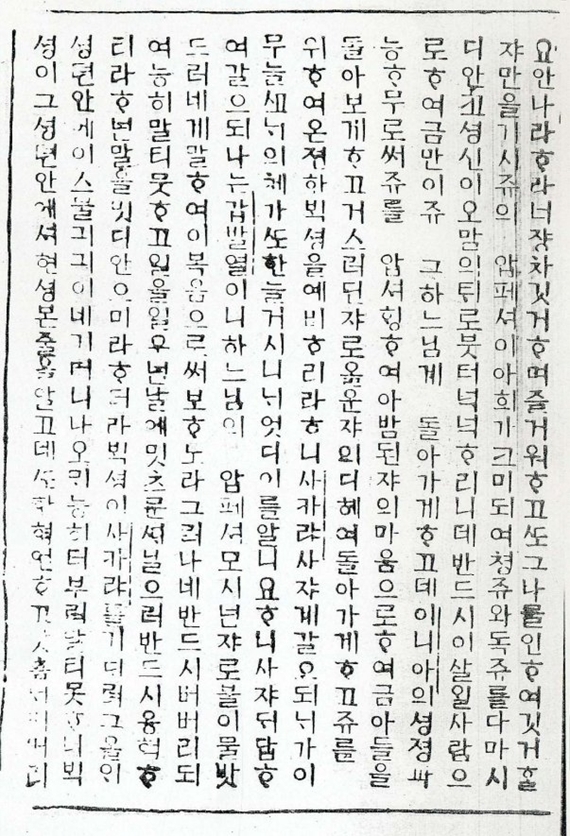 요안나라ᄒᆞ라너쟝차깃거ᄒᆞ며즐거워ᄒᆞ고ᄯᅩ그나믈인ᄒᆞ여깃거ᄒᆞᆯ
쟈만을기시쥬의 압페셔이아희기크미되여청쥬와독쥬를다마시
디안코셩신이오맘의튀로붓터넉넉ᄒᆞ리니데반드시이살일사람으
로ᄒᆞ여금만이쥬 그하느님게 돌아가게ᄒᆞ고데이니아의셩졍과
능ᄒᆞ무로써쥬를 압셔힝ᄒᆞ여아밤된쟈의마음으로ᄒᆞ여금아들을
돌아보게ᄒᆞ고거스리던쟈로옳운쟈의디혜여돌아가게ᄒᆞ고쥬를
위ᄒᆞ여온젼하ᄇᆡᆨ셩을예비ᄒᆞ리라ᄒᆞ니사카랴사쟈게갈오되뉘가이
뉘의체가ᄯᅩ한늘거시니뉘엇디이를알니요ᄒᆞ니사쟈더답ᄒᆞ
여갈으되나는갑발열이니하느님의 압페셔모시년쟈로불이물밧
드러네게말ᄒᆞ여이복음으로써보ᄒᆞ노라그러나네반드시버버리되
여능히말티못ᄒᆞ고일을일우년날에밋츠문써닐으러반드시응험ᄒᆞ
티라ᄒᆞ년말을밋디안으미라ᄒᆞ더라ᄇᆡᆨ셩이사카랴를기더려그올인
셩뎐안에이스물긔긔이네기더니나오민능히더부러말티못ᄒᆞ니ᄇᆡᆨ
셩이그셩뎐안에셔현셩본줄을알고데ᄯᅩ한형언ᄒᆞ고